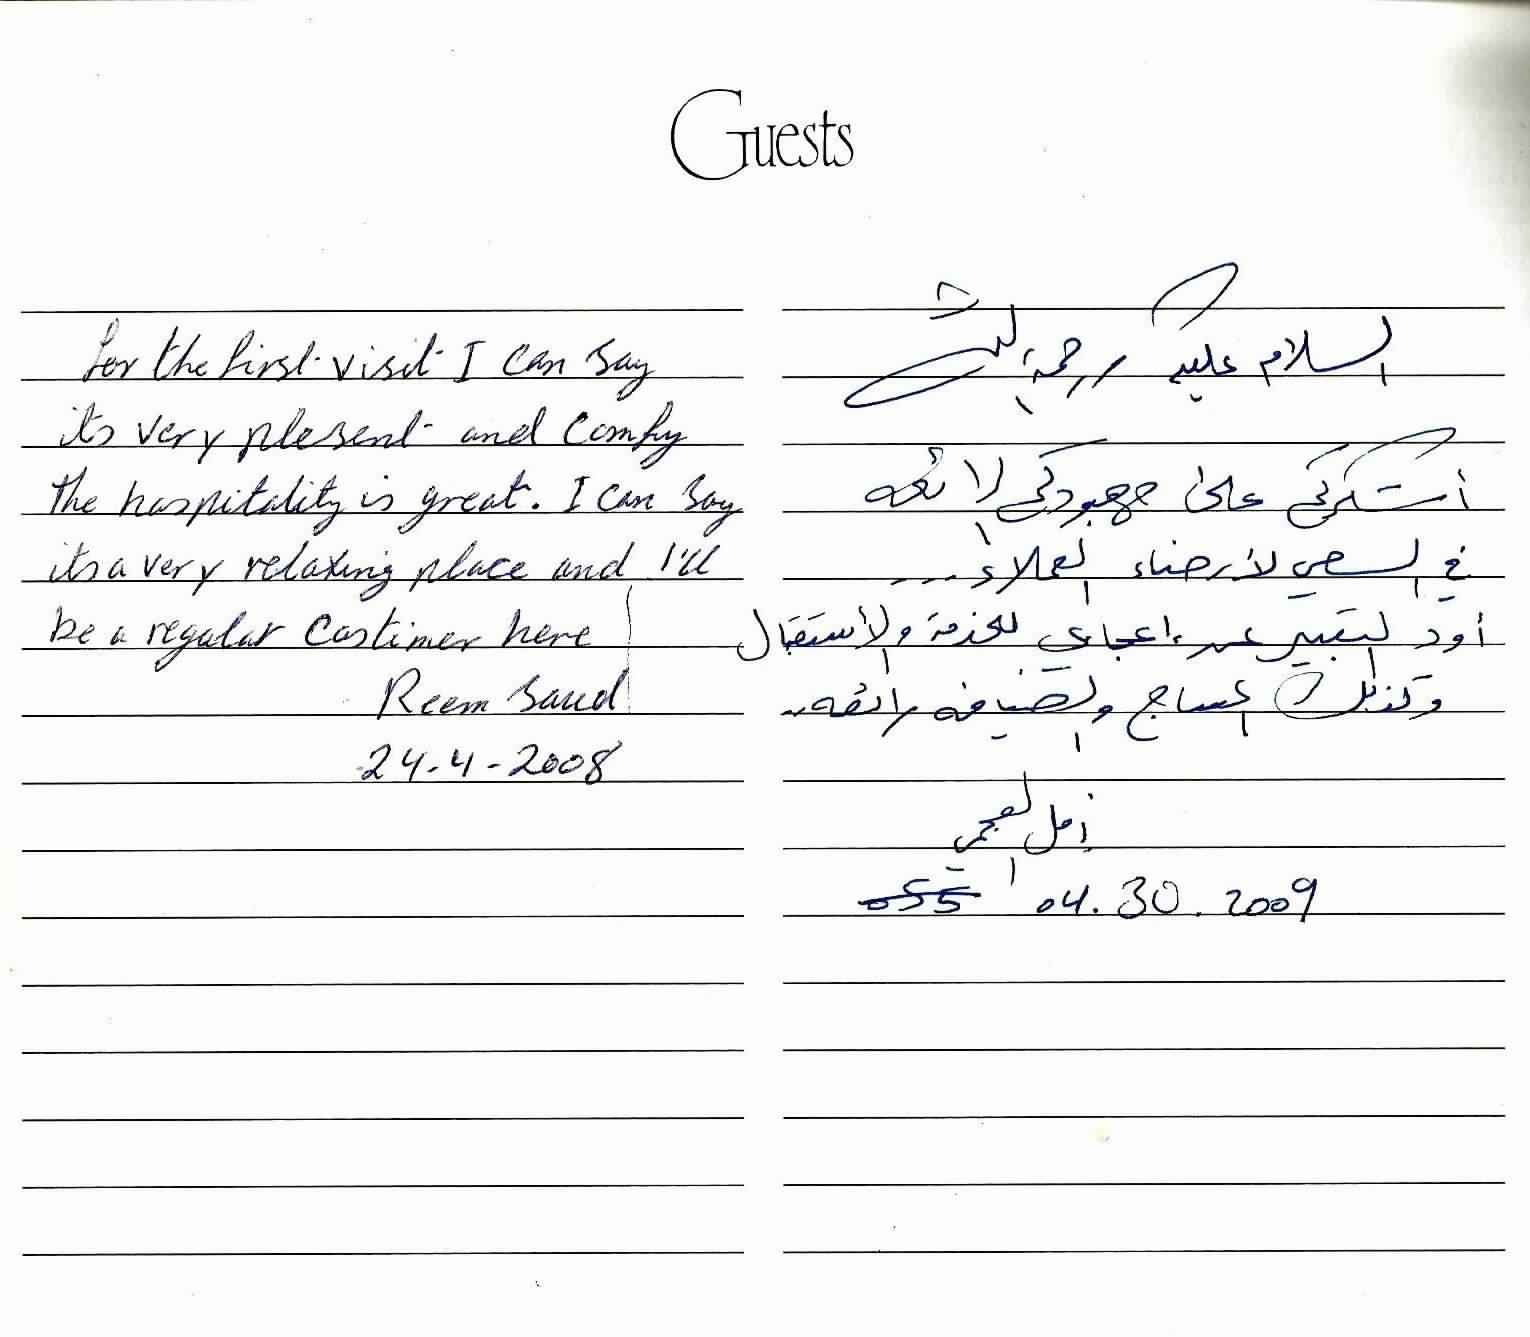 Guests
for the first visit I can say
its very plesent and comfy
the hospitality is great. I can say
its a very relaxing place and I'll
be a regular Costimer here
Reem Saud
24-4-2008
السلام عليكم ورحمة الله
أشكركم على مجهودكم الرائعه
في السعي لأرضاء العملاء ...
أود التعبير عن إعجابي للخدمة والأستقبال
وكذلك المساج والضيافه رائعه..
أمل العجمي
055 04.30.2009